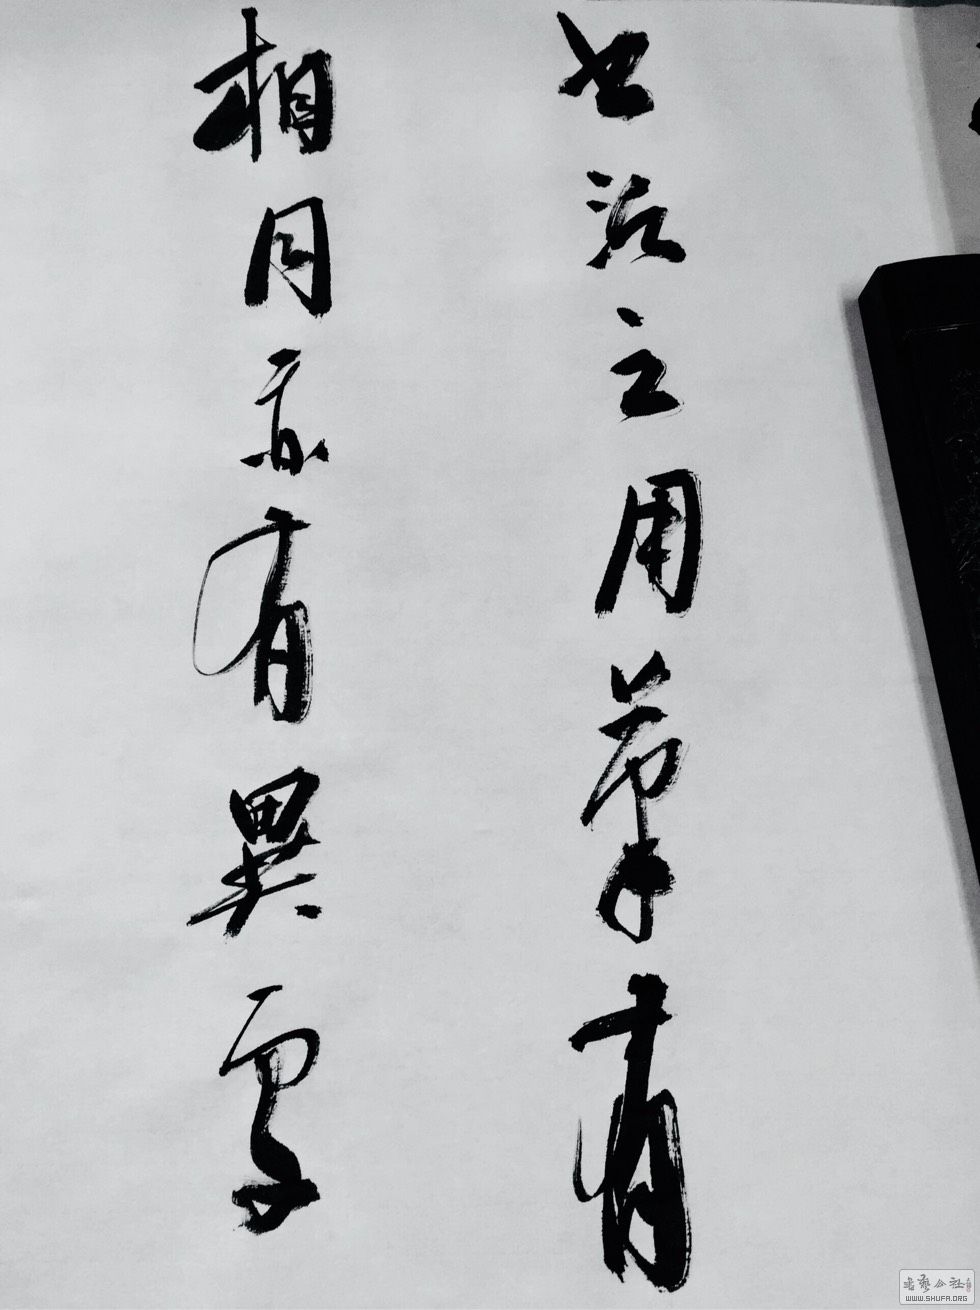 法之用筆有
相同亦有異
书艺公社
WWW.SHUFA.ORG